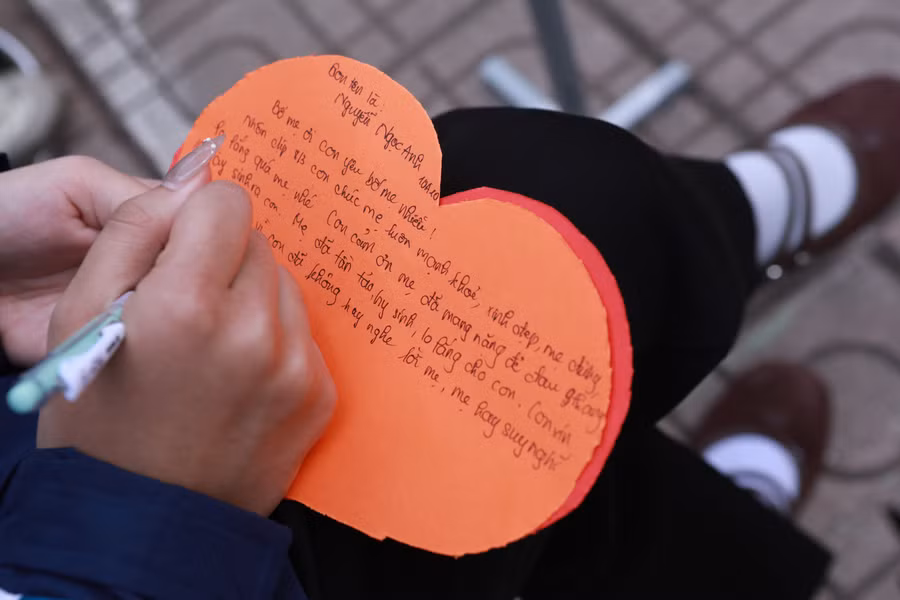 Con tên là:
Nguyễn Ngọc Anh 10A10
Bố mẹ ơi con yêu bố mẹ nhiều!
Nhân dịp 8/3 con chúc mẹ luôn mạnh khoẻ, xinh đẹp, mẹ đừng
lo lắng quá mẹ nhé. Con cảm ơn mẹ đã mang nặng đẻ đau 9 tháng
sinh ra con. Mẹ đã tần tảo, hy sinh, lo lắng cho con. Con xin
con đã không hay nghe lời mẹ, mẹ hay suy nghĩ